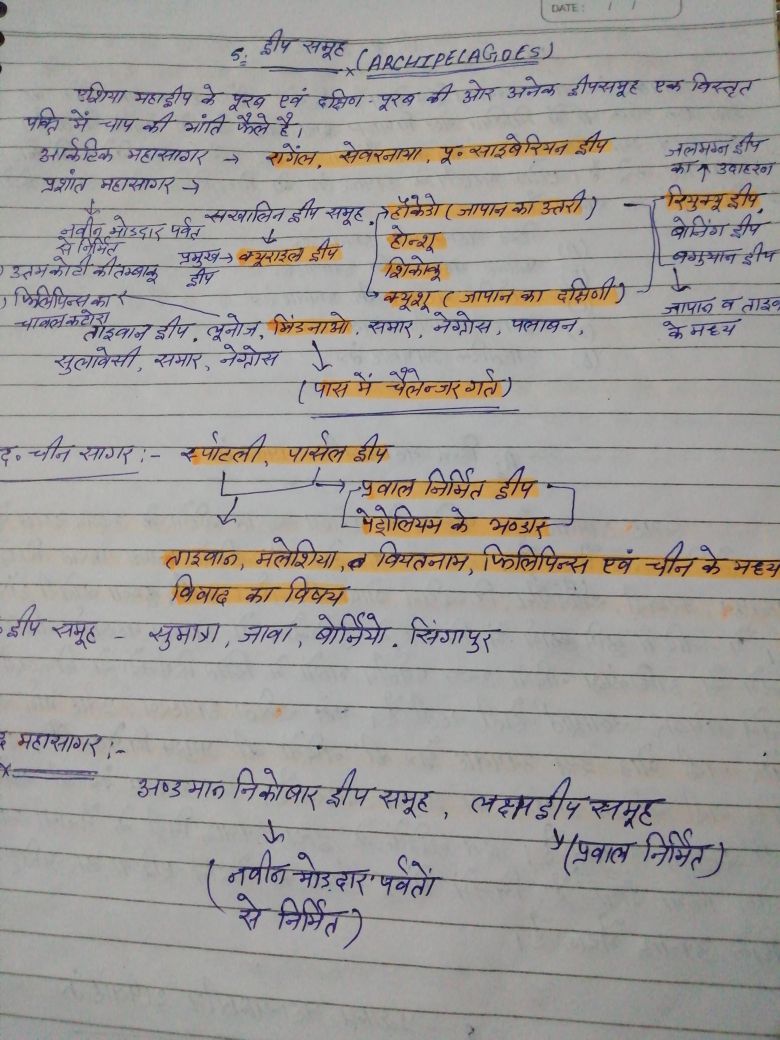 DATE: / /
5: द्वीप समूह (ARCHIPELAGOES)
एशिया महाद्वीप के पूरब एवं दक्षिण-पूरब की ओर अनेक द्वीपसमूह एक विस्तृत
पंक्ति में चाप की भांति फैले है।
आर्कटिक महासागर → रांगेल, सेवरनाया, पू. साइबेरियन द्वीप
जलमग्न द्वीप
का उदाहरन
प्रशांत महासागर →
नवीन मोडदार पर्वत
से निर्मित
सखालिन द्वीप समूह
प्रमुख → क्यूराइल द्वीप
द्वीप
हॉकैडो (जापान का उत्तरी)
होन्शू
शिकोकू
क्यूशू (जापान का दक्षिणी)
रियुक्यू द्वीप
बोनिंग द्वीप
बगुयान द्वीप
जापान व ताइव
के मध्य
उत्तम कोटी की तम्बाकू
फिलिपिन्स का
चावल कटोरा
ताइवान द्वीप, लूनोज, मिंडनाओ, समार, नेग्रोस, पलाबन,
सुलावेसी, समार, नेग्रोस
(पास में चैलेन्जर गर्त)
द. चीन सागर :- स्पोटली, पार्सल द्वीप
प्रवाल निर्मित द्वीप
पेट्रोलियम के भण्डार
ताइवान, मलेशिया, व वियतनाम, फिलिपिन्स एवं चीन के मध्य
विवाद का विषय
द्वीप समूह - सुमात्रा, जावा, बोर्नियो, सिंगापुर
महासागर :-
अण्डमान निकोबार द्वीप समूह, लक्षद्वीप समूह
(प्रवाल निर्मित)
(नवीन मोडदार पर्वतों
से निर्मित)